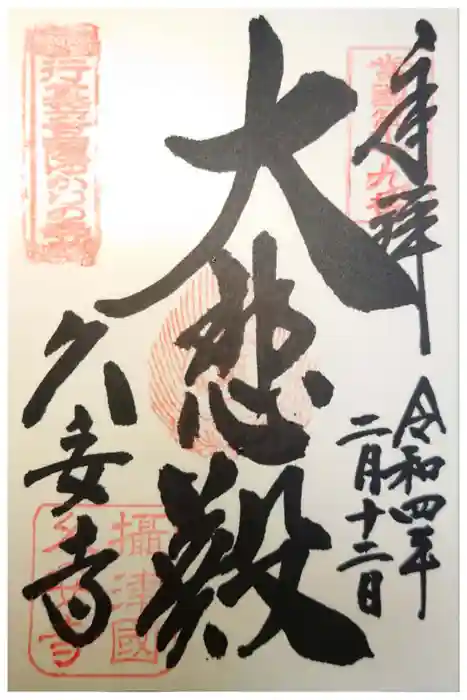 奉拝
令和四年
二月十二日
大悲殿
久安寺
攝津國
久安寺